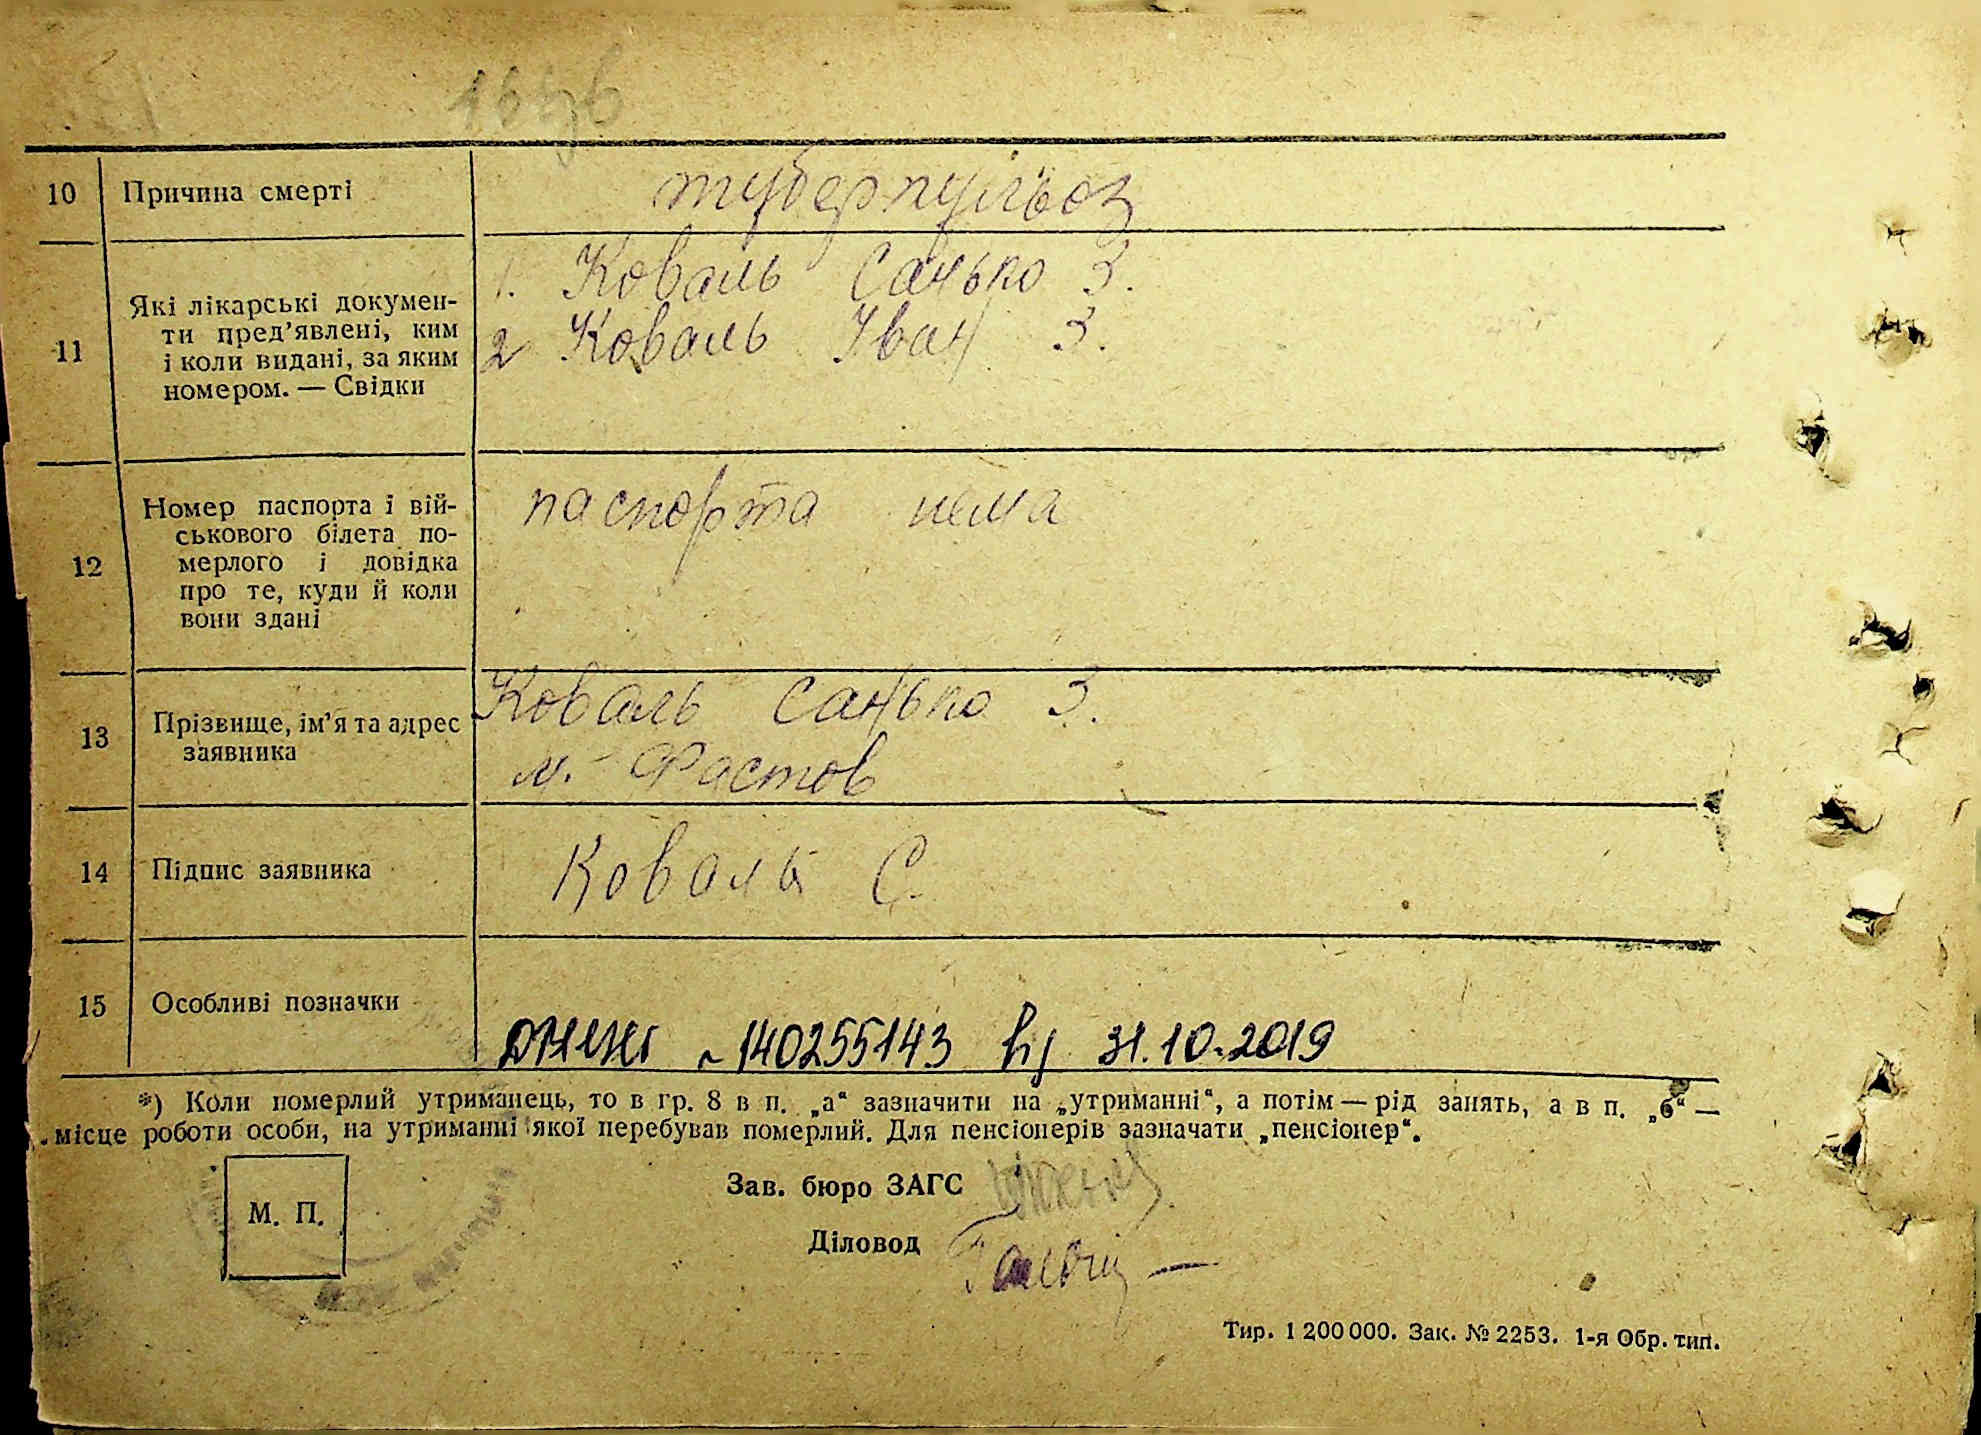 10 Причина смерті туберкульоз
11 Які лікарські докумен-
ти пред’явлені, ким
і коли видані, за яким
номером. — Свідки
1. Коваль Санько З.
2 Коваль Іван З.
12 Номер паспорта і вій-
ськового білета по-
мерлого і довідка
про те, куди й коли
вони здані
паспорта нема
13 Прізвище, ім’я та адрес
заявника
Коваль Санько З.
м. Фастов
14 Підпис заявника Коваль С.
15 Особливі позначки
140255143 31.10.2019
*) Коли померлий утриманець, то в гр. 8 в п. „а“ зазначити на „утриманні“, а потім — рід занять, а в п. „б“ —
місце роботи особи, на утриманні якої перебував померлий. Для пенсіонерів зазначати „пенсіонер“.
М. П.
Зав. бюро ЗАГС
Діловод
Тир. 1 200 000. Зак. № 2253. 1-я Обр. тип.